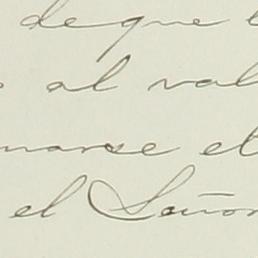 deque
al val
marse el
el Señor